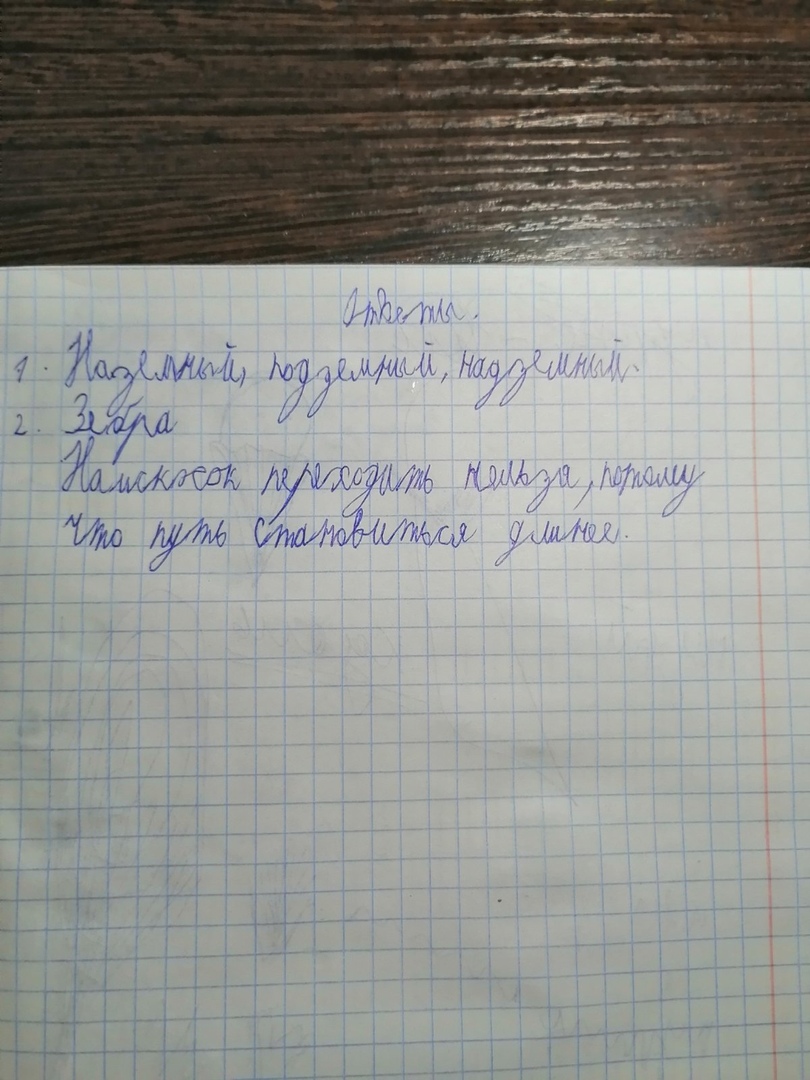 Ответы.
1. Наземный, подземный, надземный.
2. Зебра
Наискосок переходить нельзя, потому
что путь становиться длинее.